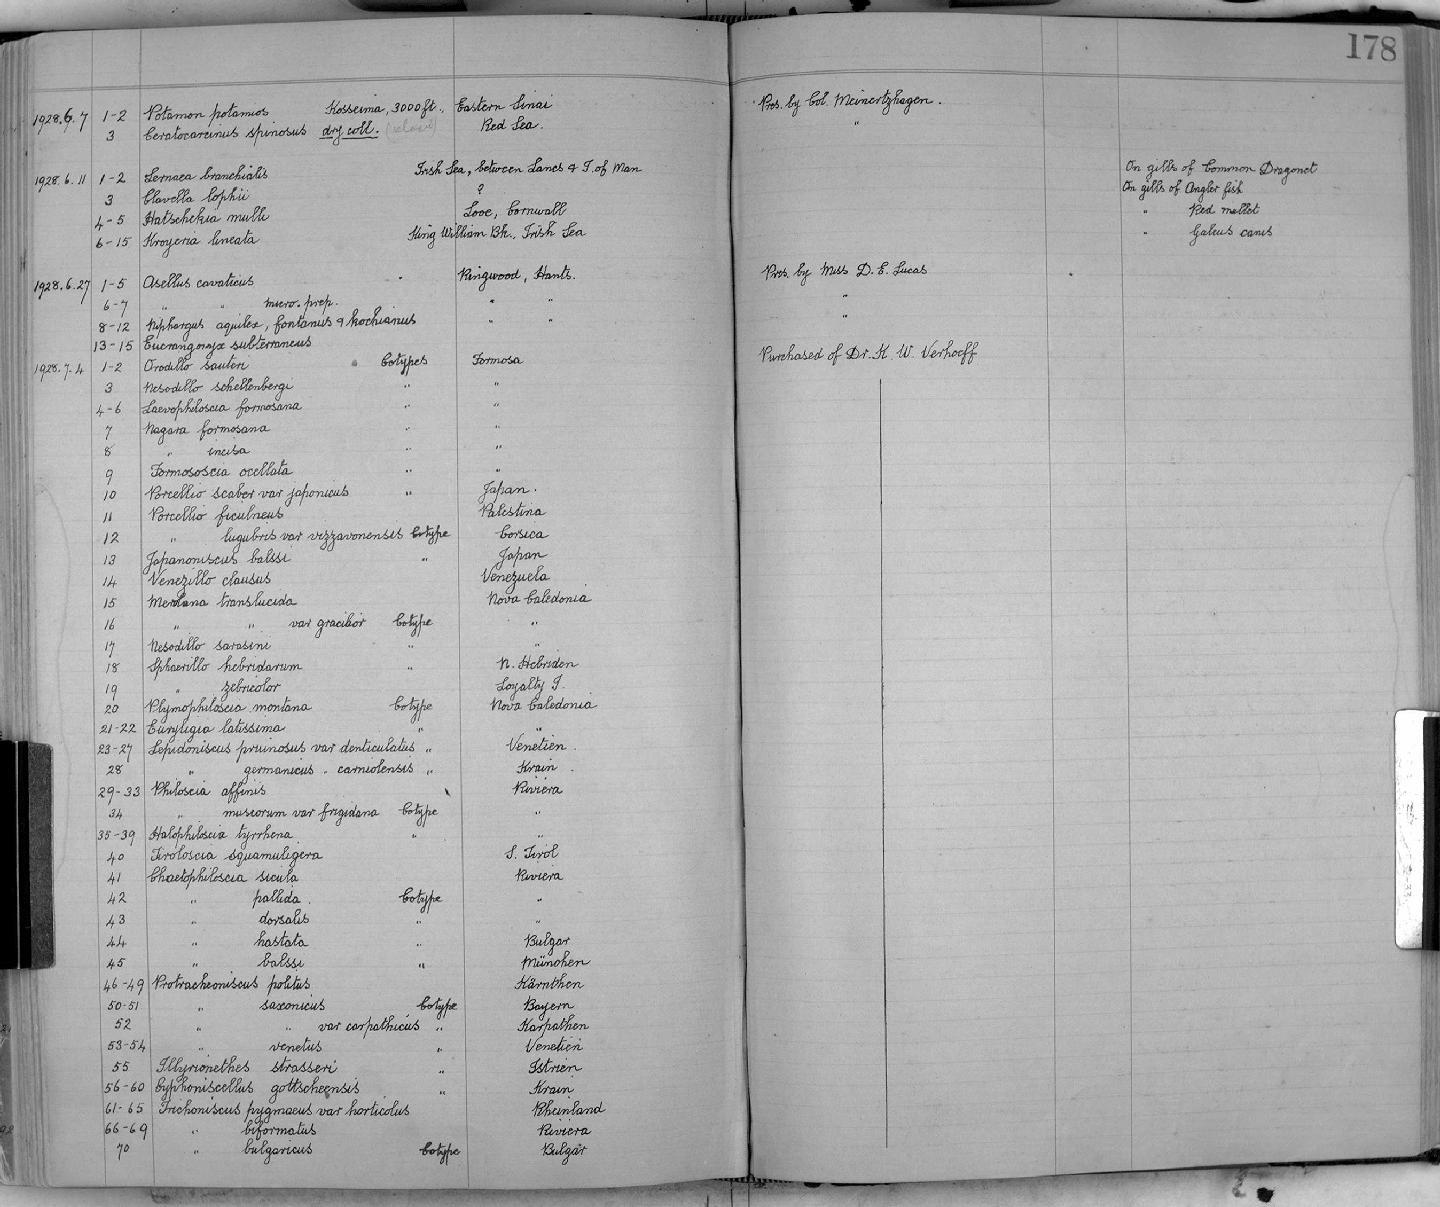 178
1928.6.7 1-2 Potamon potamios Kosseima, 3000 ft., Eastern Sinai Pres. by Col. Meinertzhagen.
3 Ceratocarcinus spinosus dry coll. Red Sea. "
1928.6.11 1-2 Lernaea branchialis Irish Sea, between Lancs & I. of Man On gills of Common Dragonet
3 Clavella lophii ? On gills of Angler fish
4-5 Hatschekia mulli Looe, Cornwall " Red mullet
6-15 Kroyeria lineata King William Bk., Irish Sea " Galeus canis
1928.6.27 1-5 Asellus cavaticus Ringwood, Hants. Pres. by Miss D. E. Lucas
6-7 " " micro. prep. " " "
8-12 Niphargus aquilex, fontanus & kochianus " " "
13-15 Eucrangonyx subterraneus
1928.7.4 1-2 Orodillo sauteri Cotypes Formosa Purchased of Dr. K. W. Verhoeff
3 Nesodillo schellenbergi " "
4-6 Laevophiloscia formosana " "
7 Nagara formosana " "
8 " incisa " "
9 Formososcia ocellata " "
10 Porcellio scaber var japonicus " Japan.
11 Porcellio ficulneus Palestina
12 " lugubris var vizzavonensis Cotype Corsica
13 Japanoniscus balssi " Japan
14 Venezillo clausus Venezuela
15 Merulana translucida Nova Caledonia
16 " " var gracilior Cotype "
17 Nesodillo sarasini " "
18 Sphaerillo hebridarum " N. Hebriden
19 " zebricolor Loyalty I.
20 Plymophiloscia montana Cotype Nova Caledonia
21-22 Euryligia latissima " "
23-27 Lepidoniscus pruinosus var denticulatus " Venetien.
28 " germanicus " carniolensis " Krain.
29-33 Philoscia affinis Riviera
34 " muscorum var frigidana Cotype "
35-39 Halophiloscia tyrrhena " "
40 Tiroloscia squamuligera S. Tirol
41 Chaetophiloscia sicula Riviera
42 " pallida. Cotype "
43 " dorsalis " "
44 " hastata " Bulgar
45 " balssi " München
46-49 Protracheoniscus politus Kärnthen
50-51 " saxonicus Cotype Bayern
52 " " var carpathicus " Karpathen
53-54 " venetus " Venetien
55 Illyrionethes strasseri " Istrien
56-60 Cyphoniscellus gottscheensis " Krain
61-65 Trichoniscus pygmaeus var horticolus Rheinland
66-69 " biformatus Riviera
70 " bulgaricus Cotype Bulgär